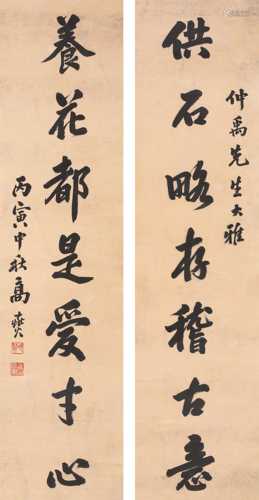 仲禹先生大雅
供石略存稽古意
養花都是愛才心
丙寅中秋高